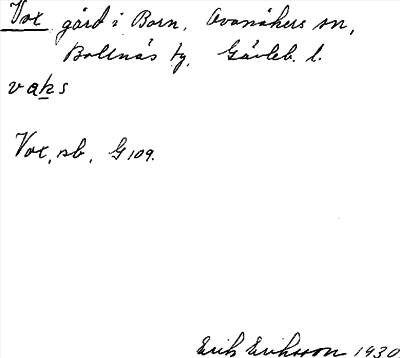 Vox gård i Born, Ovanåkers sn,
Bollnäs tg, Gävleb. l.
vaks
Vox, sb, G 109.
Erik Eriksson 1930